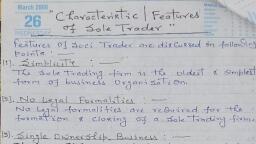 March 2008
26
"Characteristic / Features
of Sole Trader"
Features of Soci Trader are discussed in following
points :
[1]. Simplicity :
The Sole Trading firm is the oldest & simplest
form of business organisation.
[2]. No Legal Formalities :
No legal formalities are required for the
formation & closing of a sole trading firm.
[3]. Single Ownership Business :